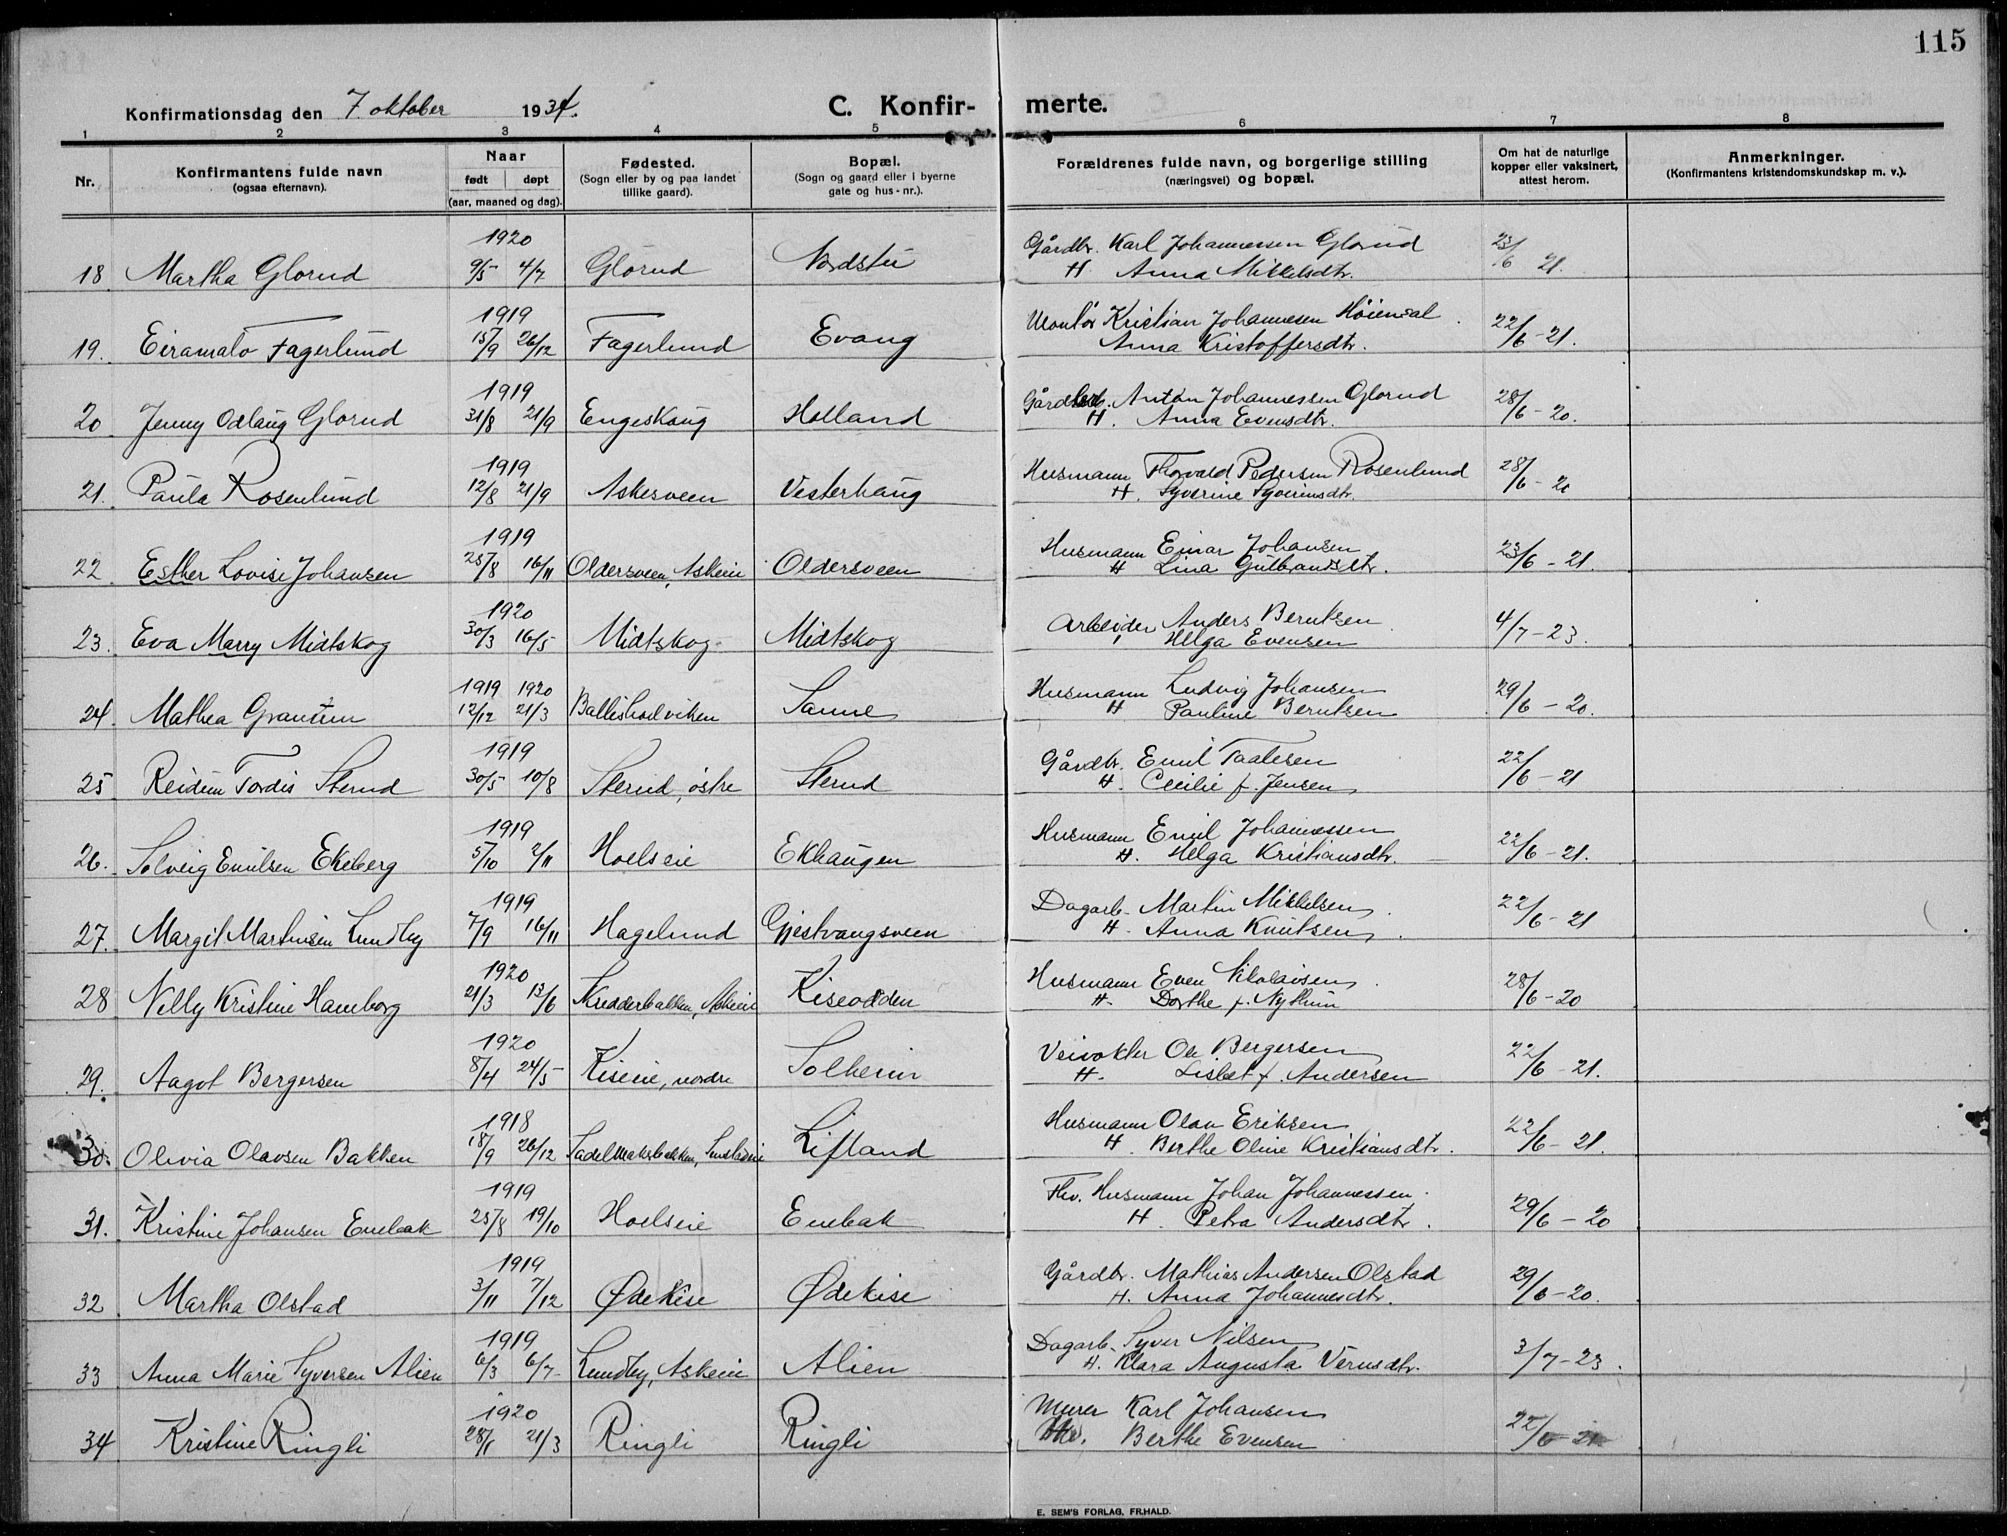 115
Konfirmationsdag den 7. oktober 1934. C. Konfir- merte.
1 2 3 4 5 6 7 8
Nr. Konfirmantens fulde navn (ogsaa efternavn). Naar født døpt (aar, maaned og dag). Fødested. (Sogn eller by og paa landet tillike gaard). Bopæl. (Sogn og gaard eller i byerne gate og hus-nr.). Forældrenes fulde navn, og borgerlige stilling (næringsvei) og bopæl. Om hat de naturlige kopper eller vaksinert, attest herom. Anmerkninger. (Konfirmantens kristendomskundskap m. v.).
1920 Gårdbr. Karl Johannessen Glorud
18 Martha Glorud 9/5 4/7 Glorud Nordstu H. Anna Mikkelsdtr. 23/6 21.
1919 Montør Kristian Johannesen
19. Fagerlund 15/9 26/12 Fagerlund Evang Anna Kristoffersdtr. 22/6-21.
1919 Anton Johannessen Glorud
20 Jenny Odlaug Glorud 31/8 21/9 Engeskaug Holland H. Anna Evensdtr. 28/6-20.
1919 Husmann Thorvald Pedersen Rosenlund
21. Paula Rosenlund 12/8 21/9 Askersveen Vesterhaug H. Syverine Syverinsdtr. 28/6-20
1919 Husmann Einar Johansen
22 Esther Lovise Johansen 25/8 16/11 Oldersveen, Askeie Oldersveen H Lina Gulbrandsdtr. 23/6-21.
1920 Arbeider Anders Berntsen
23. Eva Marry Midtskog 30/3 16/5 Midtskog Midtskog Helga Evensen 4/7-23.
1919 1920 Husmann Ludvig Johansen
24. Mathea Granum 12/12 21/3 Sanne H Pauline Berntsen 29/6-20.
1919 Gårdbr. Emil Taalesen
25. Reidun Tordis Sterud 30/5 10/8 Sterud, østre Sterud H. Cecilie f. Jensen 22/6-21
1919 Husmann Emil Johannessen
26. Solveig Emilsen Ekeberg 5/10 2/11 Hoelseie Ekhaugen H. Helga Kristiansdtr. 22/6-21.
1919 Dagarb. Martin Mikkelsen
27. Margit Martinsen Lundby 7/9 16/11 Hagelund Gjestvangsveen H. Anna Knutsen 22/6-21
1920 Husmann Even Nikolaisen
28 Nelly Kristine Hamborg 21/3 13/6 Kisevodden H. Dorthe f. Nythun 28/6-20
1920 Veivokter Ole Bergersen
29. Aagot Bergersen 8/4 24/5 Kiseie, nordre Solheim H. Lisbet f. Andersen 22/6-21.
1918 Husmann Olav Eriksen
30. Olivia Olavsen Bakken 18/9 26/12 Lifland H. Berthe Oline Kristiansdtr. 22/6-21.
1919 Fhv. Husmann Johan Johannessen
31. Kristine Johansen Enebak 25/8 19/10 Hoelseie Enebak H. Petra Andersdtr. 29/6-20
1919 Gårdbr. Mathias Andersen Olstad
32. Martha Olstad 3/11 7/12 Ødekise Ødekise H. Anna Johannesdtr. 29/6-20.
1919 Dagarb. Syver Nilsen
33 Anna Marie Syversen Alien 6/3 6/7 Lundby, Askeie Alien H. Klara Augusta Vernsdtr. 3/7-23.
1920 Murer Karl Johansen
34 Kristine Ringli 28/1 21/3 Ringli Ringli Berthe Evensen 22/6-21
E. SEM'S FORLAG, FR.HALD.